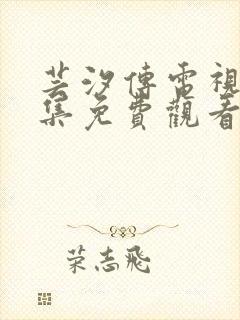 芸汐傳電視
集免費觀看
荣志飛